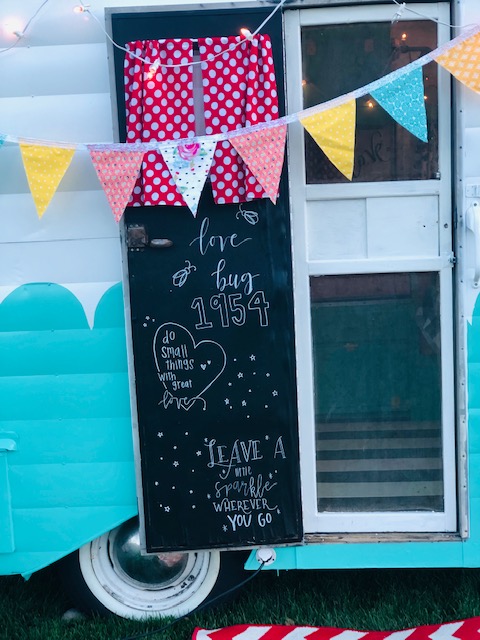 love
bug
1954
do
small
things
with
great
love
LEAVE A
little
sparkle
WHEREVER
YOU GO